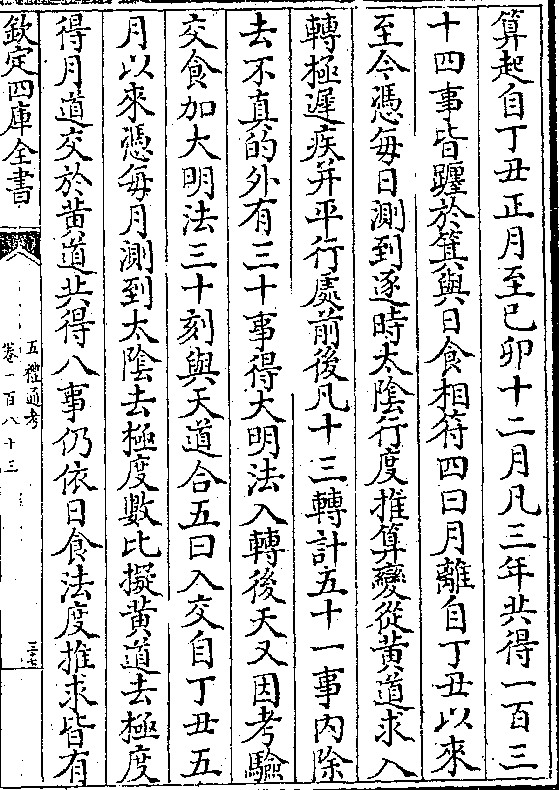 算起自丁丑正月至己卯十二月凡三年共得一百三
十四事皆躔於箕與日食相符四曰月離自丁丑以來
至今憑每日測到逐時太陰行度推算變從黄道求入
轉極遲疾并平行處前後凡十三轉計五十一事内除
去不真的外有三十事得大明法入轉後天又因考驗
交食加大明法三十刻與天道合五曰入交自丁丑五
月以來憑每月測到太陰去極度數比擬黄道去極度
得月道交於黄道共得八事仍依日食法度推求皆有
欽定四庫全書
五禮通考
卷一百八十三
三十七